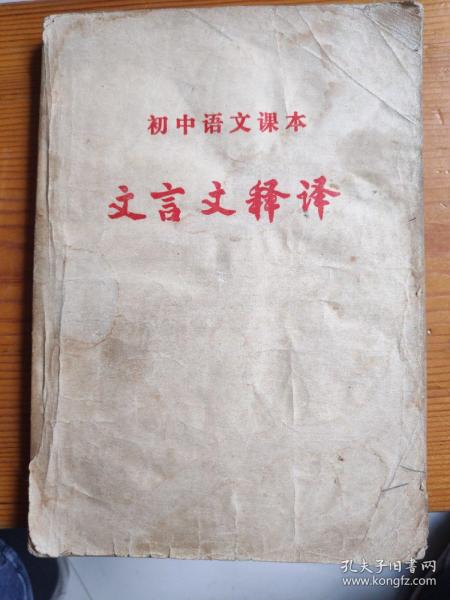 初中语文课本
文言文释译
孔夫子旧书网
www.kongfz.com